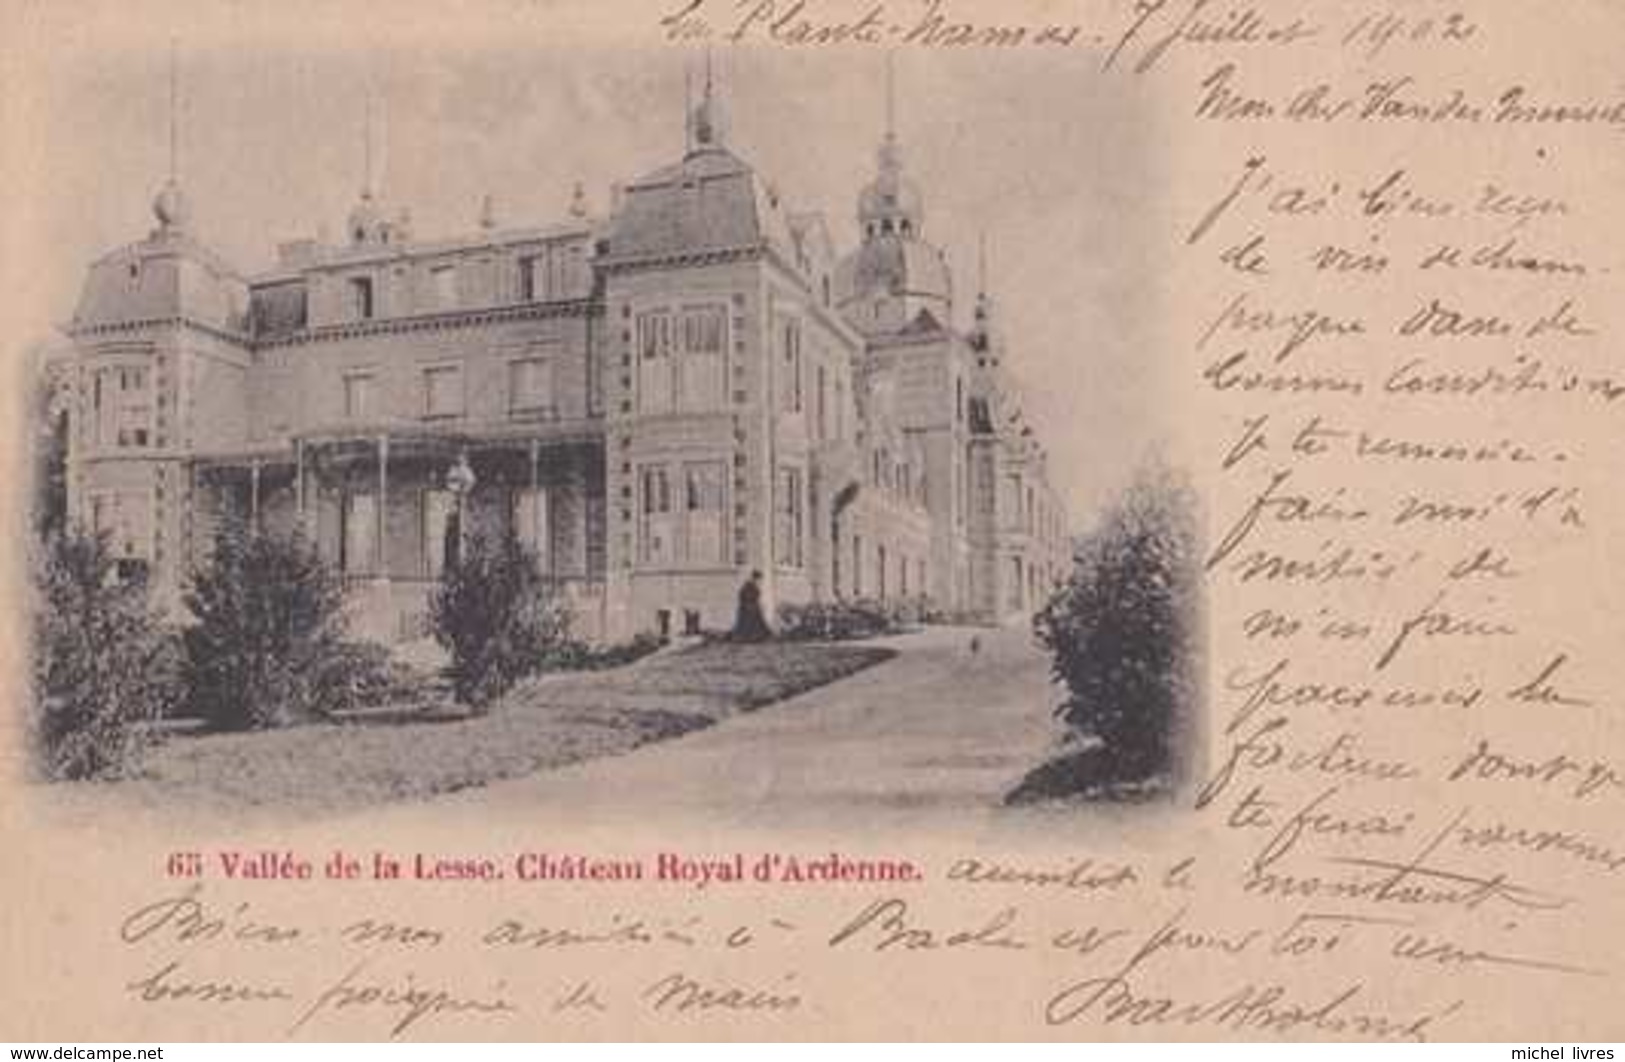 La Plante-Namur. 7 Juillet 1902
Mon cher Vander
J'ai bien reçu
le vin de cham-
pagne dans de
bonnes conditions
je te remercie.
Fais moi l'a
mitié de
m'en faire
parvenir la
facture dont je
te ferai parvenir
65 Vallée de la Lesse. Château Royal d'Ardenne.
aussitot le montant
Bien mes amitiés à et pour toi une
bonne poignée de main.
Bartholomé
www.delcampe.net
michel_livres